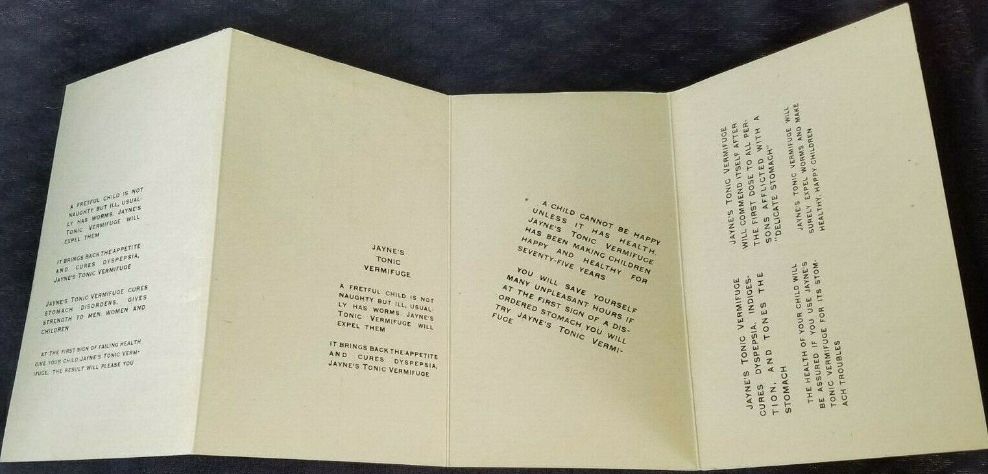 A FRETFUL CHILD IS NOT
NAUGHTY BUT ILL, USUAL-
LY HAS WORMS. JAYNE'S
TONIC VERMIFUGE WILL
EXPEL THEM
IT BRINGS BACK THE APPETITE
AND CURES DYSPEPSIA,
JAYNE'S TONIC VERMIFUGE
JAYNE'S TONIC VERMIFUGE CURES
STOMACH DISORDERS, GIVES
STRENGTH TO MEN, WOMEN AND
CHILDREN
AT THE FIRST SIGN OF FAILING HEALTH
GIVE YOUR CHILD JAYNE'S TONIC VERMI-
FUGE. THE RESULT WILL PLEASE YOU
JAYNE'S
TONIC
VERMIFUGE
A FRETFUL CHILD IS NOT
NAUGHTY BUT ILL, USUAL-
LY HAS WORMS. JAYNE'S
TONIC VERMIFUGE WILL
EXPEL THEM
IT BRINGS BACK THE APPETITE
AND CURES DYSPEPSIA,
JAYNE'S TONIC VERMIFUGE
A CHILD CANNOT BE HAPPY
UNLESS IT HAS HEALTH.
JAYNE'S TONIC VERMIFUGE
HAS BEEN MAKING CHILDREN
HAPPY AND HEALTHY FOR
SEVENTY-FIVE YEARS
YOU WILL SAVE YOURSELF
MANY UNPLEASANT HOURS IF
AT THE FIRST SIGN OF A DIS-
ORDERED STOMACH YOU WILL
TRY JAYNE'S TONIC VERMI-
FUGE
JAYNE'S TONIC VERMIFUGE
WILL COMMEND ITSELF AFTER
THE FIRST DOSE TO ALL PER-
SONS AFFLICTED WITH A
"DELICATE STOMACH"
JAYNE'S TONIC VERMIFUGE WILL
SURELY EXPEL WORMS AND MAKE
HEALTHY, HAPPY CHILDREN
JAYNE'S TONIC VERMIFUGE
CURES DYSPEPSIA, INDIGES-
TION, AND TONES THE
STOMACH
THE HEALTH OF YOUR CHILD WILL
BE ASSURED IF YOU USE JAYNE'S
TONIC VERMIFUGE FOR ITS STOM-
ACH TROUBLES